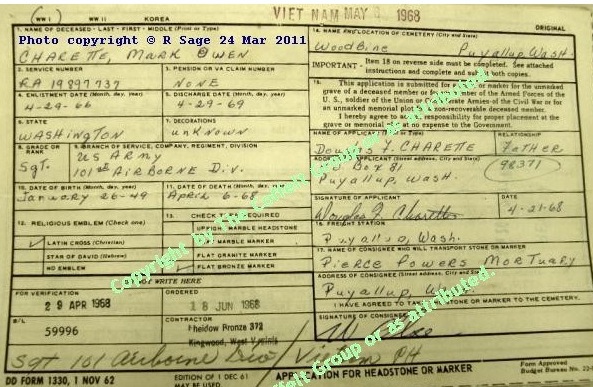 WW I WW II KOREA VIET NAM MAY 8 1968
ORIGINAL
1. NAME OF DECEASED - LAST - FIRST - MIDDLE (Print or Type)
Photo copyright © R Sage 24 Mar 2011
CHARETTE, MARK OWEN
2. SERVICE NUMBER
RA 19897737
3. PENSION OR VA CLAIM NUMBER
NONE
4. ENLISTMENT DATE (Month, day, year)
4-29-66
5. DISCHARGE DATE (Month, day, year)
4-29-69
6. STATE
WASHINGTON
7. DECORATIONS
unKnown
8. GRADE OR RANK
Sgt.
9. BRANCH OF SERVICE, COMPANY, REGIMENT, DIVISION
US ARMY
101st AIRBORNE DIV.
10. DATE OF BIRTH (Month, day, year)
January 26-49
11. DATE OF DEATH (Month, day, year)
April 6-68
12. RELIGIOUS EMBLEM (Check one)
LATIN CROSS (Christian)
STAR OF DAVID (Hebrew)
NO EMBLEM
13. CHECK TYPE REQUIRED
UPRIGHT MARBLE HEADSTONE
FLAT MARBLE MARKER
FLAT GRANITE MARKER
FLAT BRONZE MARKER
DO NOT WRITE HERE
FOR VERIFICATION
29 APR 1968
ORDERED
18 JUN 1968
B/L
59996
CONTRACTOR
Sheidow Bronze 372
Kingwood, West Virginia
14. NAME AND LOCATION OF CEMETERY (City and State)
Woodbine Puyallup, Wash.
IMPORTANT - Item 18 on reverse side must be completed. See attached
instructions and complete and submit both copies.
15. This application is submitted for a stone or marker for the unmarked
grave of a deceased member or former member of the Armed Forces of the
U. S., soldier of the Union or Confederate Armies of the Civil War or for
an unmarked memorial plot for a non-recoverable deceased member.
I hereby agree to accept responsibility for proper placement at the
grave or memorial plot at no expense to the Government.
NAME OF APPLICANT (Print or Type)
Douglas F. CHARETTE
RELATIONSHIP
Father
ADDRESS OF APPLICANT (Street address, City and State)
Box 81 98371
Puyallup, Wash.
SIGNATURE OF APPLICANT
Douglas F. Charette
DATE
4-21-68
16. FREIGHT STATION
Puyallup, Wash.
17. NAME OF CONSIGNEE WHO WILL TRANSPORT STONE OR MARKER
Pierce Powers Mortuary
ADDRESS OF CONSIGNEE (Street address, City and State)
Puyallup, Wash.
I HAVE AGREED TO TAKE STONE OR MARKER TO THE CEMETERY.
Sgt 101 Airborne Div / Vietnam PH
DD FORM 1330, 1 NOV 62
EDITION OF 1 DEC 61
MAY BE USED
APPLICATION FOR HEADSTONE OR MARKER
Form Approved
Budget Bureau No. 22-
Copyright by The Coffelt Group or as attributed.
Coffelt Group or as attributed.